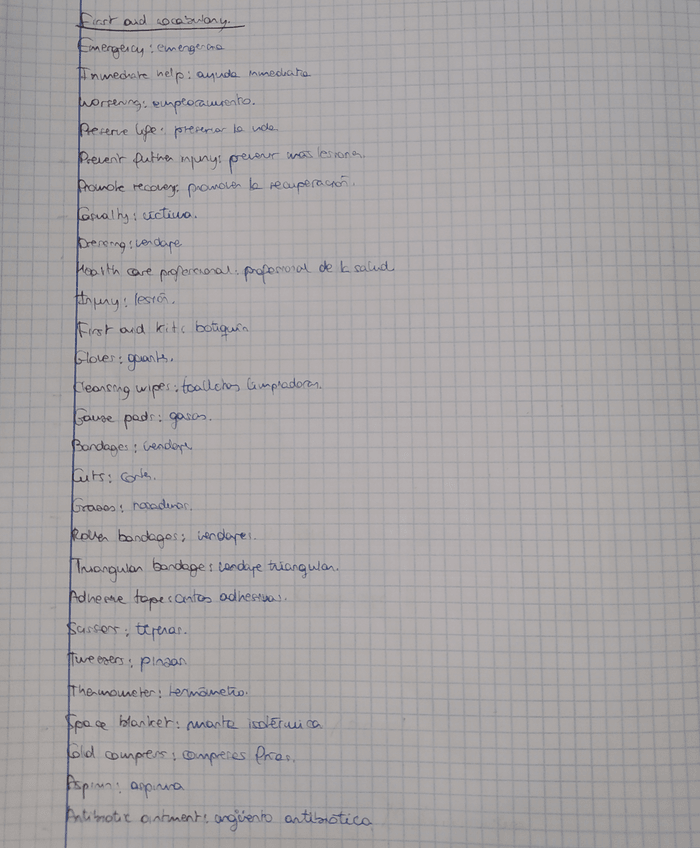 First aid vocabulary.
Emergency: emergencia
Inmediate help: ayuda inmediata
Worsening: empeoramiento.
Preserve life: preservar la vida.
Prevent futher injury: prevenir más lesiones.
Promote recovery: promover la recuperación.
Casualty: víctima.
Dressing: vendaje
Health care professional: profesional de la salud
Injury: lesión.
First aid kit: botiquín
Gloves: guantes.
Cleansing wipes: toallitas limpiadoras.
Gauze pads: gasas.
Bandages: vendaje
Cuts: cortes.
Grazes: rozaduras.
Roller bandages: vendajes.
Triangular bandage: vendaje triangular.
Adhesive tape: cintas adhesivas.
Scissors: tijeras.
Tweezers: pinzas
Thermometer: termómetro.
Space blanket: manta isotérmica
Cold compress: compresas frías.
Aspirin: aspirina
Antibiotic ointment: angüento antibiótico